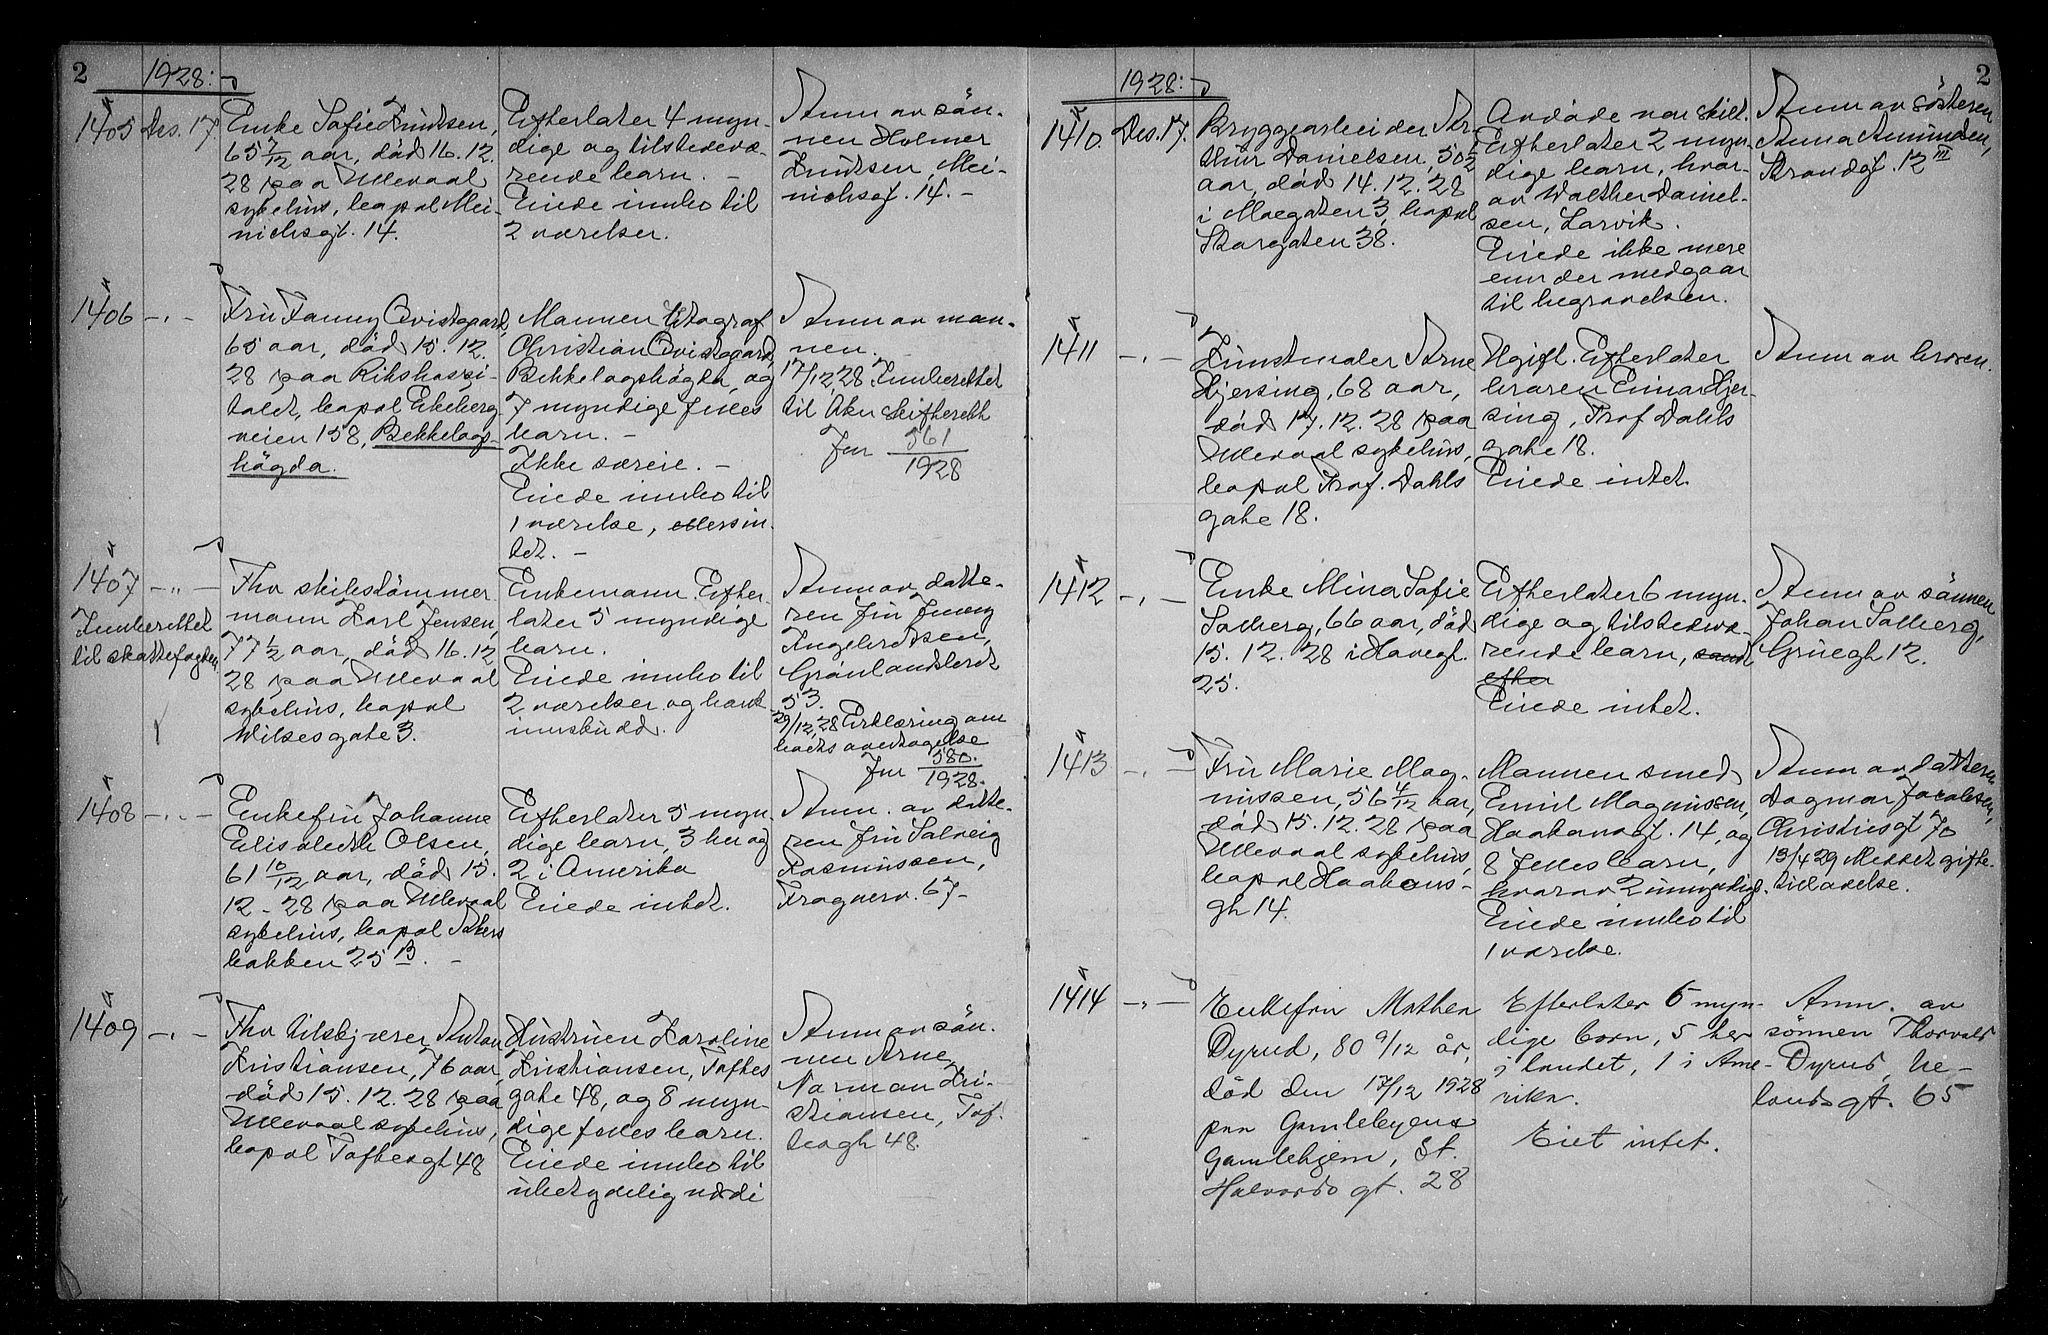 2
1928:
1405 Des. 17.
Enke Sofie Knudsen,
65 7/12 aar, død 16.12.
28 paa Ullevaal
sykehus, bopæl Mei-
nichsgt. 14.
Efterlater 4 myn-
dige og tilstedevæ-
rende barn. -
Eiede innbo til
2 værelser.
Anm av søn-
nen Holmer
Knudsen, Mei-
nichsgt. 14. -
1406 -"-
Fru Fanny Qvistgaard,
65 aar, død 15.12.
28 paa Rikshospi-
talet, bopæl Ekeberg
veien 158, Bekkelags-
høgda.
Mannen litograf
Christian Qvistgaard,
Bekkelagshøgda, og
7 myndige felles
barn. -
Ikke særeie. -
Eiede innbo til
1 værelse, ellers in-
tet. -
Anm av man-
nen.
17/12 28 Innberettet
til Aker skifterett
Jnr 561
1928
1407 -"-
Innberettet
til skattefogden
Fhv skibstømmer
mann Karl Jensen,
77 1/2 aar, død 16.12
28 paa Ullevaal
sykehus, bopæl
Wilsesgate 3.
Enkemann. Efter-
later 5 myndige
barn.
Eiede innbo til
2 værelser og bank
innskudd.
Anm av datte-
ren fru Jenny
Ingebretsen,
Grønlandsleret
53.
29/12 28 Erklæring om
boets overtagelse
Jnr 580.
1928.
1408 -"-
Enkefru Johanne
Elisabeth Olsen,
61 10/12 aar, død 15.
12 - 28 paa Ullevaal
sykehus, bopæl Akers
bakken 25 B. -
Efterlater 5 myn-
dige barn, 3 her og
2 i Amerika
Eiede intet.
Anm. av datte-
ren fru Solveig
Rasmussen,
Frognerv. 67-
1409 -"-
Fhv tilskjærer Anton
Kristiansen, 76 aar,
død 15.12.28 paa
Ullevaal sykehus,
bopæl Toftesgt 48
Hustruen Karoline
Kristiansen, Toftes
gate 48, og 8 myn-
dige felles barn.
Eiede innbo til
ubetydelig verdi
Anm av søn.
nen Arne
Norman Kri-
stiansen, Tof.
tesgt 48.
2
1928:
1410. Des. 17.
Bryggearbeider Ar-
thur Danielsen, 50 1/2
aar, død 14.12.28
i Moegaten 3, bopæl
Storgaten 38.
Avdøde var skilt.
Efterlater 2 myn-
dige barn, hvor-
av Walther Daniel-
sen, Larvik.
Eiede ikke mere
enn der medgaar
til begravelsen.
Anm av søsteren
Anna Amundsen,
Strandgt. 12 III
1411 -"-
Kunstmaler Arne
Hjersing, 68 aar,
død 17.12.28 paa
Ullevaal sykehus,
bopæl Prof. Dahls
gate 18.
Ugift. Efterlater
broren Einar Hjer-
sing, Prof Dahls
gate 18.
Eiede intet.
Anm av broren.
1412 -"-
Enke Mina Sofie
Solberg, 66 aar, død
15.12.28 i Havegt.
25.
Efterlater 6 myn-
dige og tilstedevæ-
rende barn, samt
efter
Eiede intet.
Anm av sønnen
Johan Solberg,
Grüegt 12.
1413 -"-
Fru Marie Mag-
nussen, 56 4/12 aar,
død 15.12.28 paa
Ullevaal sykehus,
bopæl Haakons-
gt 14.
Mannen smed
Emil Magnussen,
Haakonsgt. 14, og
8 felles barn,
hvorav 2 umyndige.
Eiede innbo til
1 værelse.
Anm av datteren
Dagmar Jacobsen,
Christiesgt 70
13/4 29 Meddelt gifte-
tilladelse.
1414 -"-
Enkefru Mathea
Dyrud, 80 9/12 år,
død den 17/12 1928
paa Gamlebyens
Gamlehjem, St.
Halvards gt. 28
Efterlater 6 myn-
dige barn, 5 her
i landet, 1 i Ame-
rika.
Eiet intet.
Anm. av
sønnen Thorvald
Dyrud, He-
lands gt. 65